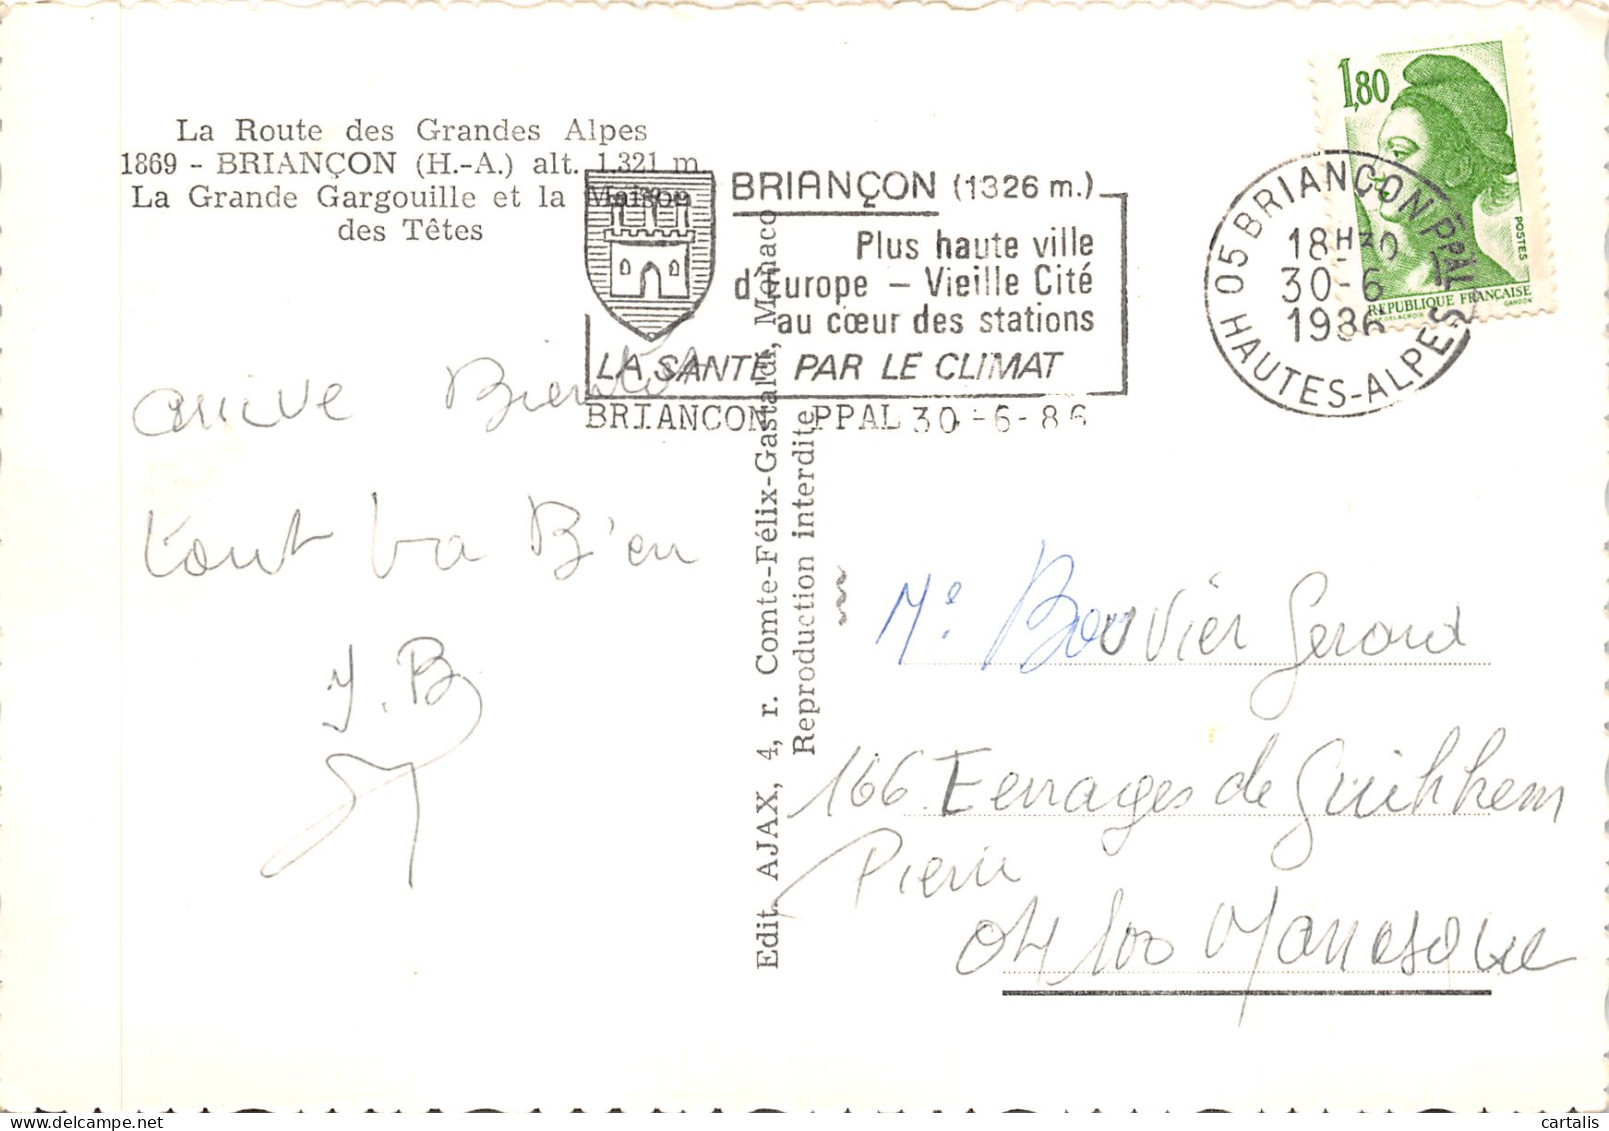 La Route des Grandes Alpes
1869 - BRIANÇON (H.-A.) alt. 1.321 m.
La Grande Gargouille et la Maison
des Têtes
BRIANÇON (1326 m.)
Plus haute ville
d'Europe – Vieille Cité
au cœur des stations
LA SANTÉ PAR LE CLIMAT
BRIANCON PPAL 30-6-86
05 BRIANÇON PPAL
18H30
30-6
1986
HAUTES-ALPES
1,80
POSTES
REPUBLIQUE FRANÇAISE
GANDON
DELACROIX
arrive Bientôt
tout va Bien
J.B
Edit. AJAX, 4, r. Comte-Félix-Gastaldi, Monaco
Reproduction interdite
Mr Bouvier Gerard
166 Terrages de Guihhem
Pierre
04100 Manosque
cartalis